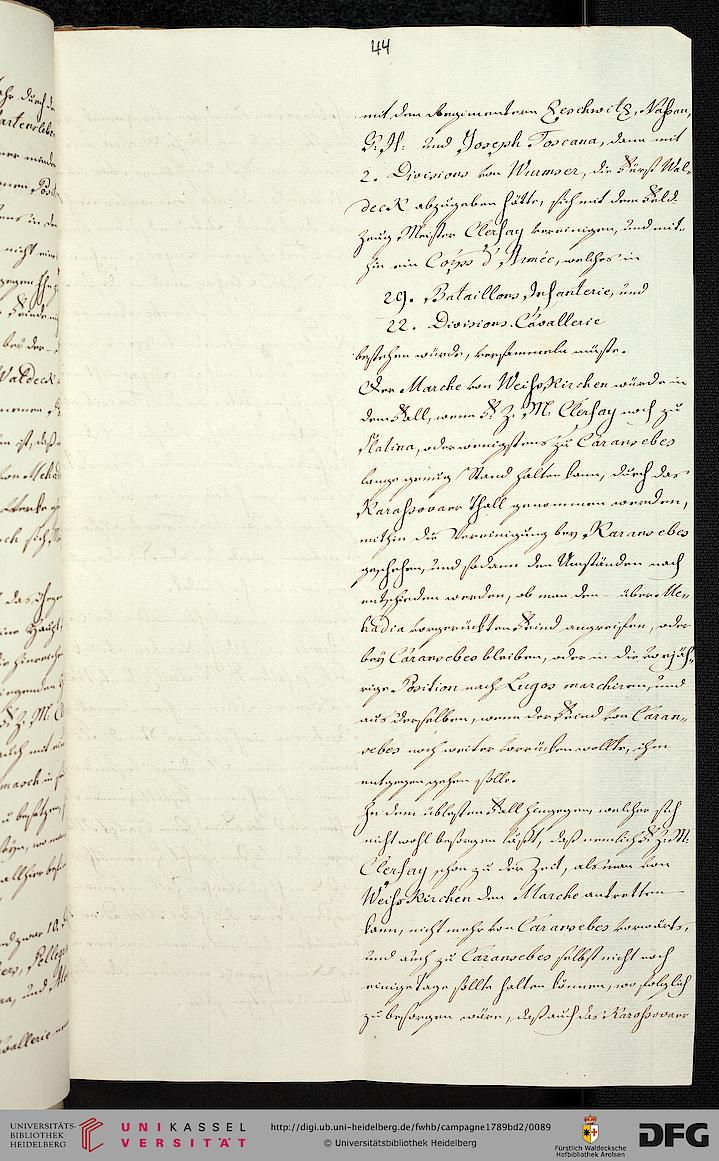 44
mit den Regimentern Zeschwitz, Nassau,
G: H: und Joseph Toscana, dann mit
2. Divisions von Wurmser, die Fürst Wal-
deck abzugeben hätte, sich mit dem Feld-
zeug Meister Clerfay vereinigen, und mit-
hin ein Corps d'Armée, welches in
29. Bataillons Infanterie, und
22. Divisions Cavallerie
bestehen würde, versammeln müste.
Der Marche von Weiskirchen würde in
dem Fall, wenn F: Z: M: Clerfay noch zu
Slatina, oder wenigstens zu Caransebes
lange genug Stand halten kann, durch das
Karassovaer Thall genommen werden,
mithin die Vereinigung bey Karansebes
geschehen, und sodann den Umständen nach
entschieden werden, ob man den – über Me-
hadia vorgerückten Feind angreifen, oder
bey Caransebes bleiben, oder in die vorjäh-
rige Position nach Lugos marchiren, und
aus derselben, wenn der Feind von Caran-
sebes noch weiter vorrücken wollte, ihm
entgegen gehen solle.
In dem üblesten Fall hingegen, welcher sich
nicht wohl besorgen läßt, daß nemlich F: Z: M:
Clerfay schon zu der Zeit, als man von
Weiskirchen den Marche antretten
kann, nicht mehr von Caransebes vorwärts,
und auch zu Caransebes selbst nicht noch
einige Tage sollte halten können, wo folglich
zu besorgen wäre, daß auch das Karassovaer
UNIVERSITÄTS-
BIBLIOTHEK
HEIDELBERG
UNIKASSEL
VERSITÄT
http://digi.ub.uni-heidelberg.de/fwhb/campagne1789bd2/0089
© Universitätsbibliothek Heidelberg
Fürstlich Waldecksche
Hofbibliothek Arolsen
DFG